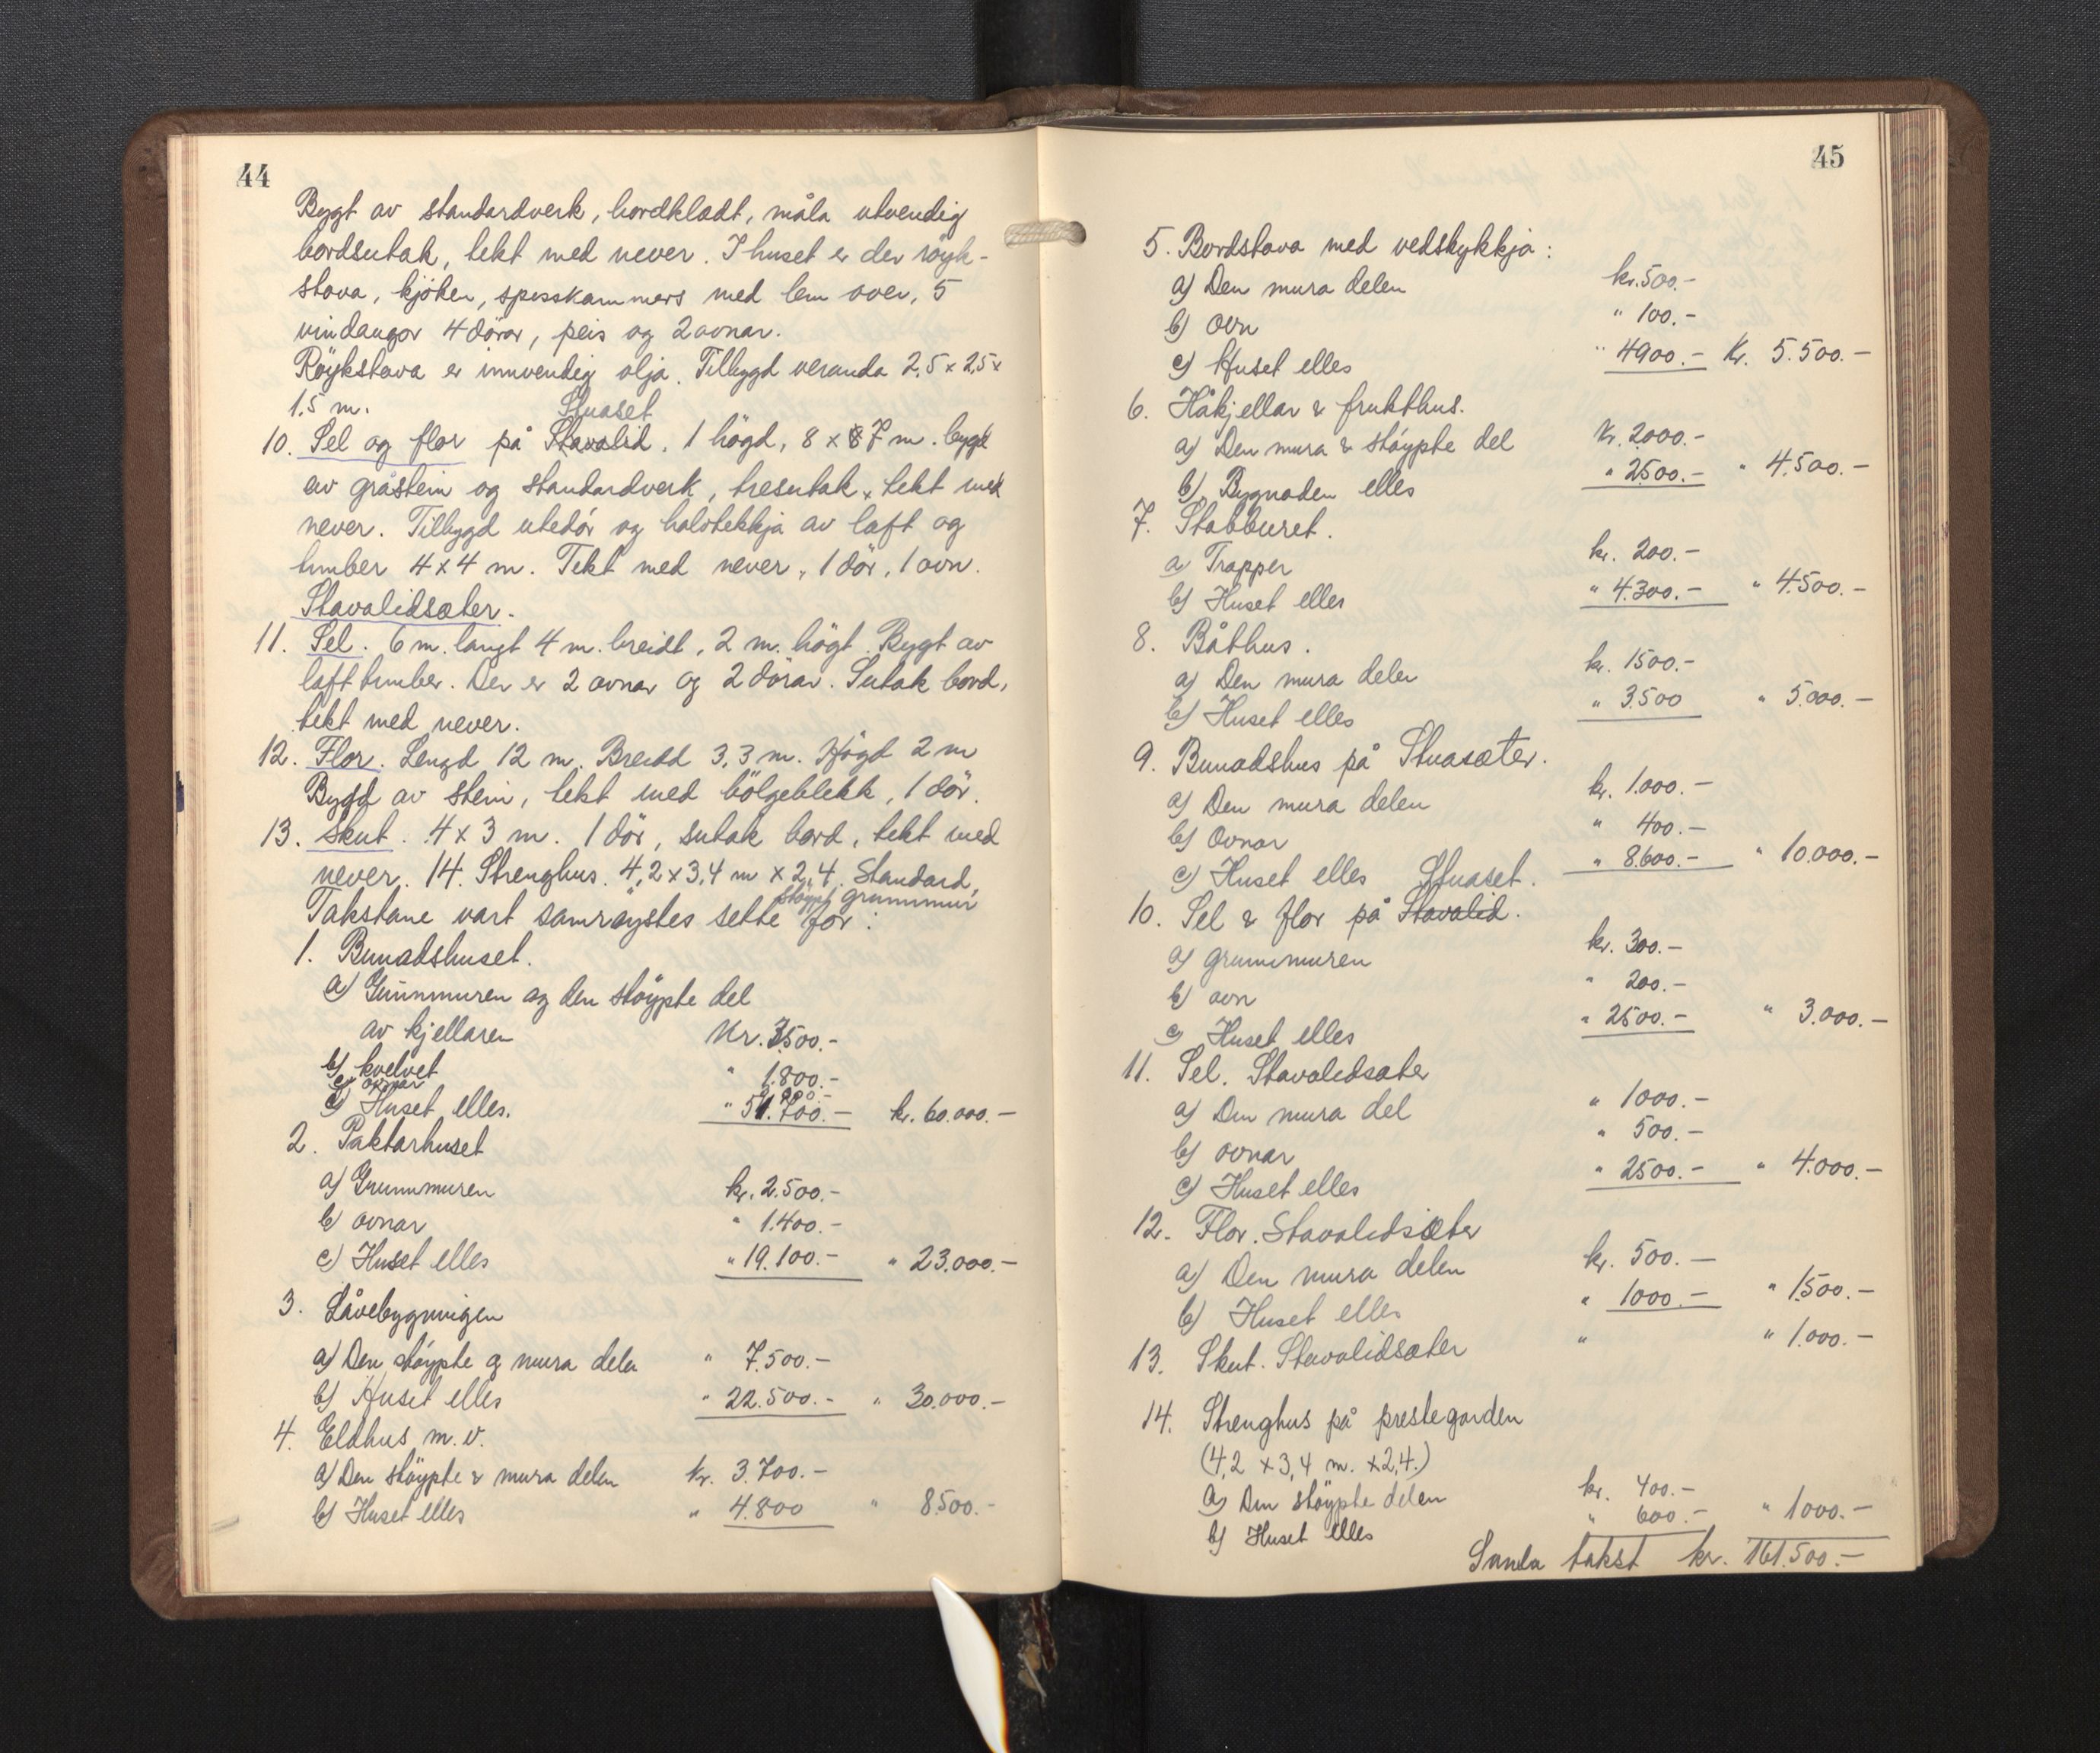 44
Bygt av standardverk, bordklædt, måla utvendig
bordsutak, tekt med never. I huset er der röyk-
stova, kjöken, spisskammers med lem over, 5
vindaugor 4 dörar, peis og 2 ovnar.
Röykstova er innvendig olja. Tilbygd veranda 2,5 x 2,5 x
1,5 m. Stuaset
10. Sel og flor på Stavalid. 1 högd, 8 x 8 7 m. bygt
av gråstein og standardverk, tresutak, tekt med
never. Tilbygd utedör og halvtekkja av laft og
timber 4 x 4 m. Tekt med never, 1 dör, 1 ovn.
Stavalidsæter.
11. Sel. 6 m. langt 4 m. breidt, 2 m. högt. Bygt av
laft timber. Der er 2 ovnar og 2 dörar. Sutak bord,
tekt med never.
12. Flor. Lengd 12 m. Breidd 3,3 m. Högd 2 m
Bygd av stein, tekt med bölgeblekk, 1 dör.
13. Skut. 4 x 3 m. 1 dör, sutak bord, tekt med
never. 14. Strenghus. 4,2 x 3,4 m x 2,4. Standard,
støypt grunnmur
Takstane vart samröystes sette for:
1. Bunadshuset.
a) Grunnmuren og den støypte del
av kjellaren Kr. 3500.-
b) kvelvet " 1.800.-
c) ovnar 3.000.-
d) Huset elles. " 51.700.- kr. 60.000.-
2. Paktarhuset
a) Grunnmuren kr. 2.500.-
b) ovnar " 1.400.-
c) Huset elles " 19.100.- " 23.000.-
3. Låvebygningen
a) Den støypte og mura delen " 7.500.-
b) Huset elles " 22.500.- " 30.000.-
4. Eldhus m.v.
a) Den støypte & mura delen kr. 3.700.-
b) Huset elles " 4.800 " 8.500.-
45
5. Bordstova med vedskykkja:
a) Den mura delen kr. 500.-
b) ovn " 100.-
c) Huset elles " 4900.- Kr. 5.500.-
6. Håkjellar & frukthus.
a) Den mura & støypte del Kr. 2000.-
b) Bygnaden elles " 2500.- " 4.500.-
7. Stabburet.
a Trapper kr. 200.-
b) Huset elles " 4.300.- " 4.500.-
8. Båthus.
a) Den mura delen kr. 1500.-
b) Huset elles " 3.500 " 5.000.-
9. Bunadshus på Stuasæter.
a) Den mura delen kr. 1.000.-
b) Ovnar " 400.-
c) Huset elles " 8.600.- " 10.000.-
Stuaset.
10. Sel & flor på Stavalid.
a) grunnmuren kr. 300.-
b) ovn " 200.-
c) Huset elles " 2500.- " 3.000.-
11. Sel. Stavalidsæter
a) Den mura del " 1000.-
b) ovnar " 500.-
c) Huset elles " 2500.- " 4.000.-
12. Flor. Stavalidsæter
a) Den mura delen kr. 500.-
b) Huset elles " 1000.- " 1.500.-
13. Skut. Stavalidsæter " " 1.000.-
14. Strenghus på prestegarden
(4,2 x 3,4 m. x 2,4.)
a) Den støypte delen kr. 400.-
b) Huset elles " 600.- " 1000.-
Samla takst kr. 161.500.-